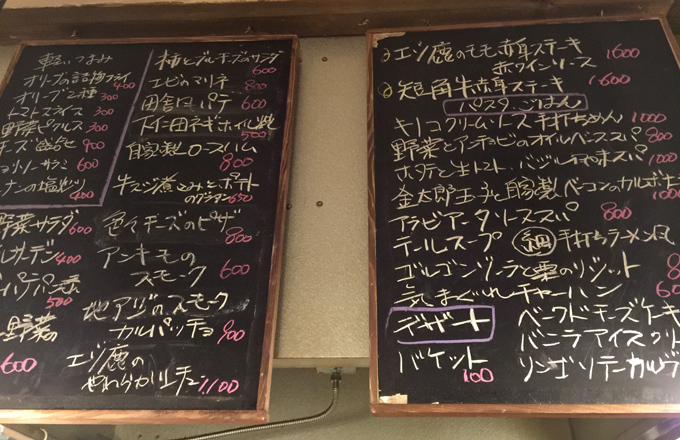 軽いつまみ
オリーブの詰物フライ 400
オリーブ三種 300
トマトスライス 300
野菜ピクルス 300
チーズ 900
600
400
野菜サラダ 600
400
500
野菜の
600
柿とブルーチーズのサラダ 600
エビのマリネ 800
田舎風パテ 600
下仁田ネギホイル焼 500
自家製ロースハム 800
牛スジ煮こみとポテトのグラタン 650
色々チーズのピザ 800
アンキモのスモーク 600
地アジのスモーク
カルパッチョ 900
エゾ鹿の
やわらかシチュー 1100
エゾ鹿のモモ赤身ステーキ 1600
赤ワインソース
短角牛赤身ステーキ 1600
パスタ・ごはん
キノコクリームソース手打ちめん 1000
野菜とアンチョビのオイルベースパ 800
ホタテと生トマト、バジル 1000
金太郎玉子と自家製ベーコンのカルボナ 1000
アラビアータソーススパ 800
テールスープ 細 手打ちラーメン風
ゴルゴンゾーラと栗のリゾット 8
気まぐれチャーハン 60
デザート
ベークドチーズケーキ
バニラアイスクリ
リンゴ
バケット 100